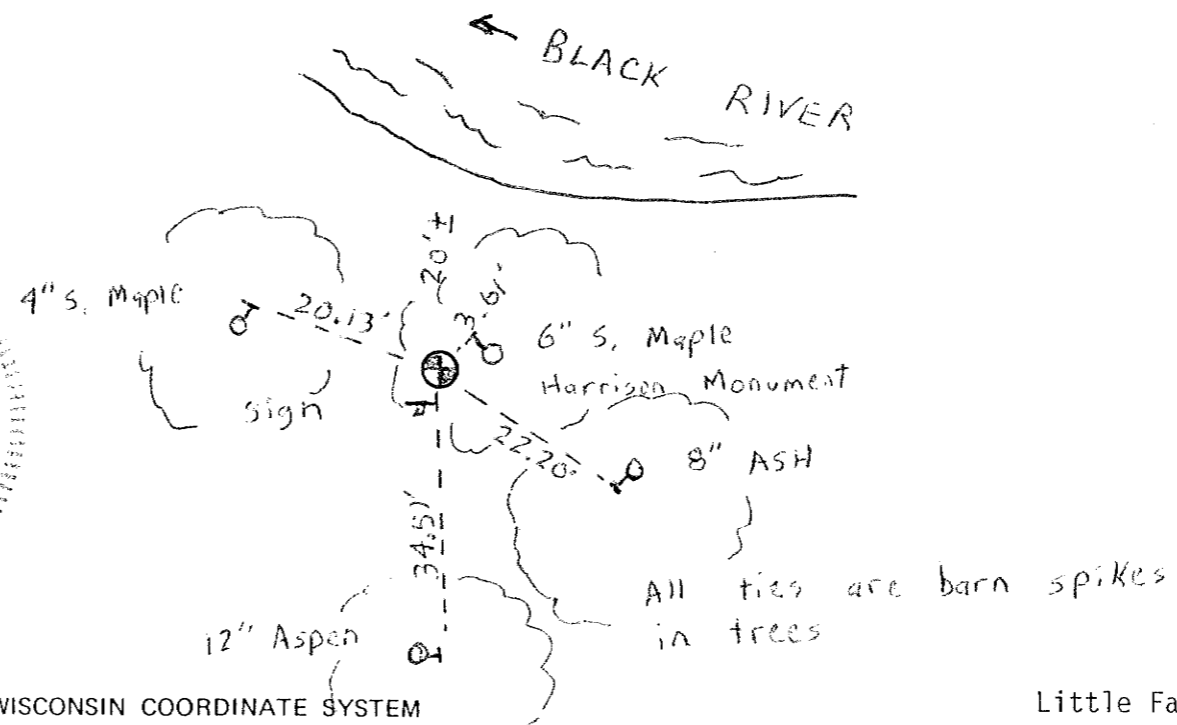 BLACK RIVER
20'±
4" S. Maple
20.13'
3.61'
6" S. Maple
Harrison Monument
Sign
22.20'
8" ASH
34.51'
All ties are barn spikes
in trees
12" Aspen
WISCONSIN COORDINATE SYSTEM
Little Fa